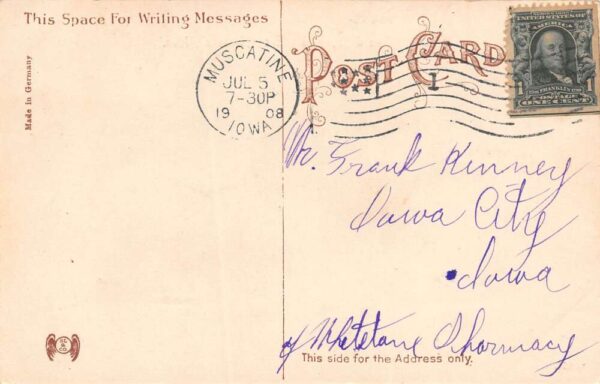 This Space For Writing Messages
Made in Germany
POST CARD
MUSCATINE
JUL 5
7-30P
1908
IOWA
1
UNITED STATES OF AMERICA
FRANKLIN
1 POSTAGE 1
ONE CENT
Mr. Frank Kinney
Iowa City
Iowa
c/o Whetstone Pharmacy
This side for the Address only.